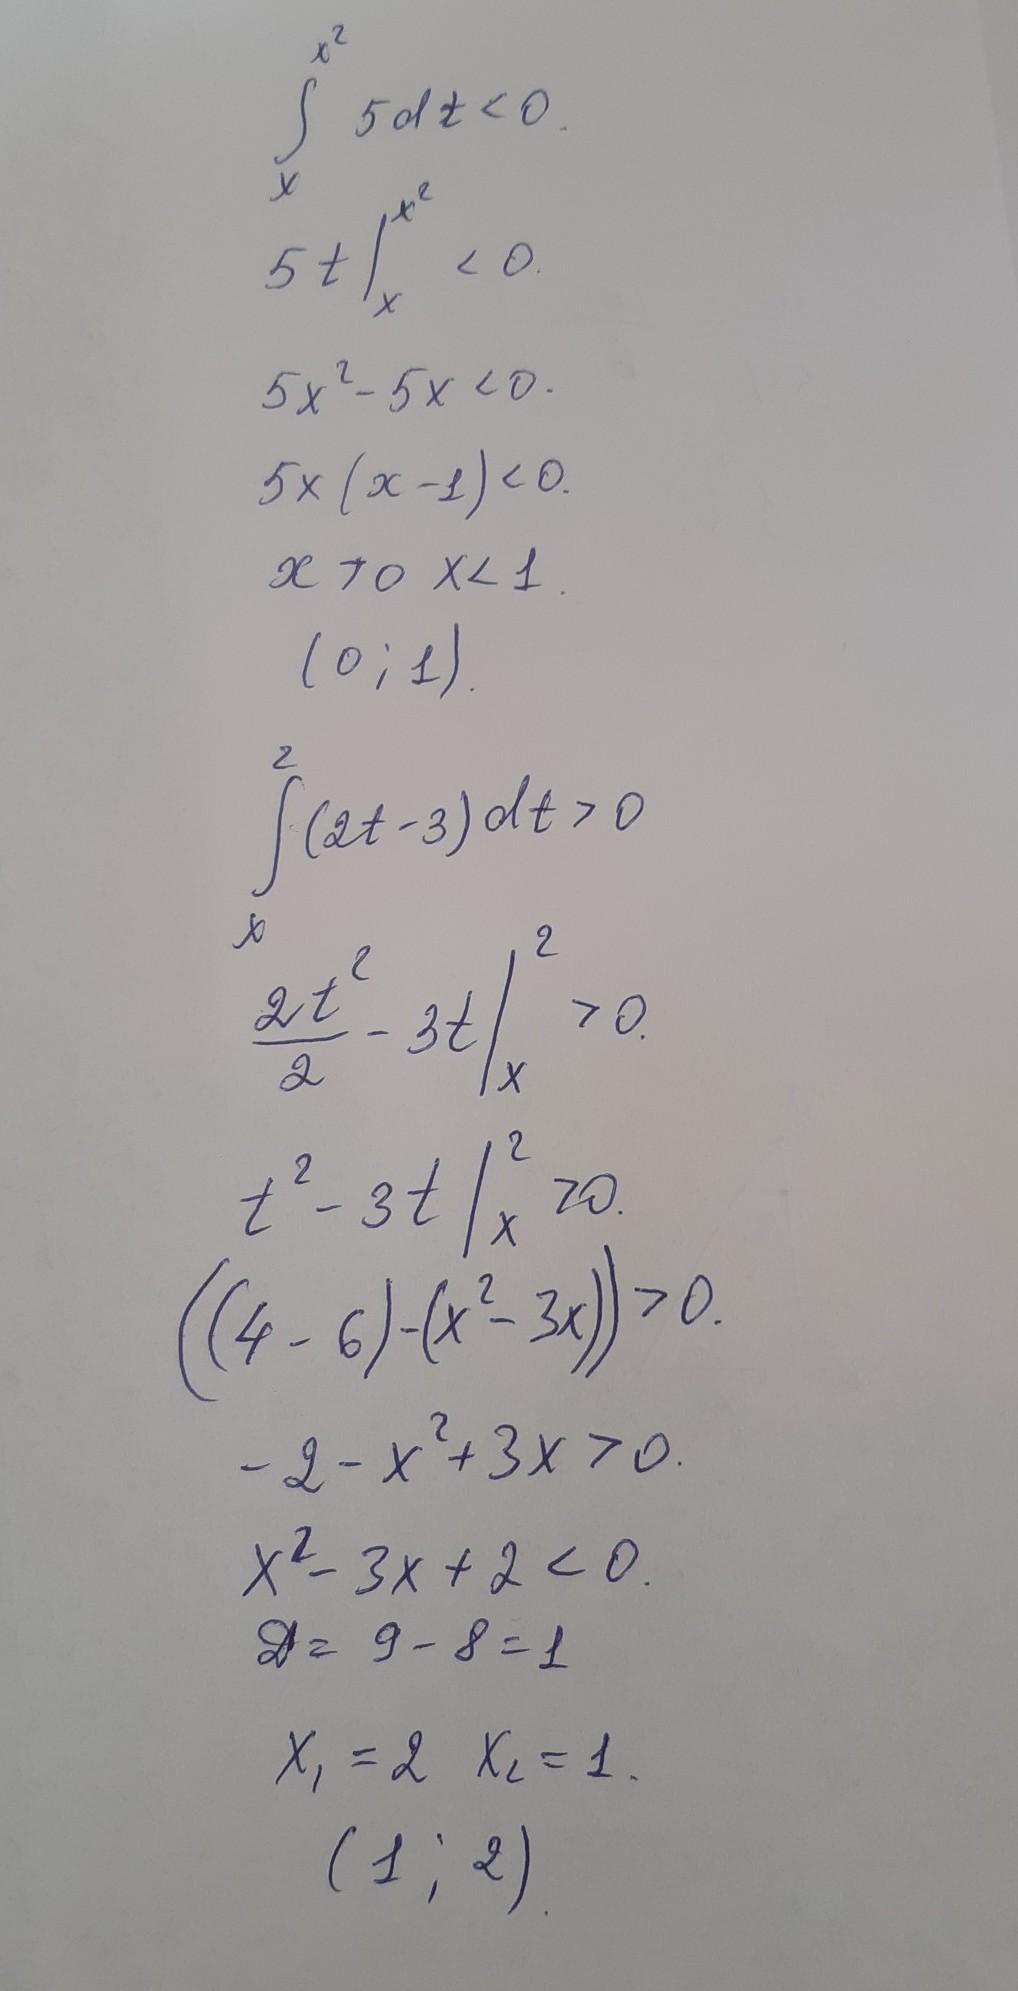 ∫ₓ^{x²} 5dt < 0.
5t |ₓ^{x²} < 0.
5x² - 5x < 0.
5x(x - 1) < 0.
x > 0 x < 1.
(0; 1).
∫ₓ² (2t - 3)dt > 0
2t²/2 - 3t |ₓ² > 0.
t² - 3t |ₓ² > 0.
((4 - 6) - (x² - 3x)) > 0.
- 2 - x² + 3x > 0.
x² - 3x + 2 < 0.
D = 9 - 8 = 1
x₁ = 2 x₂ = 1.
(1; 2).